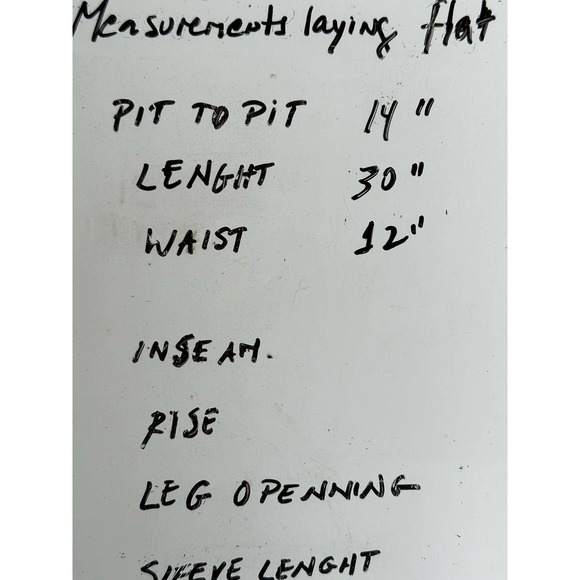 Measurements laying flat
PIT TO PIT 14"
LENGHT 30"
WAIST 12"
INSEAM.
RISE
LEG OPENNING
SLEEVE LENGHT